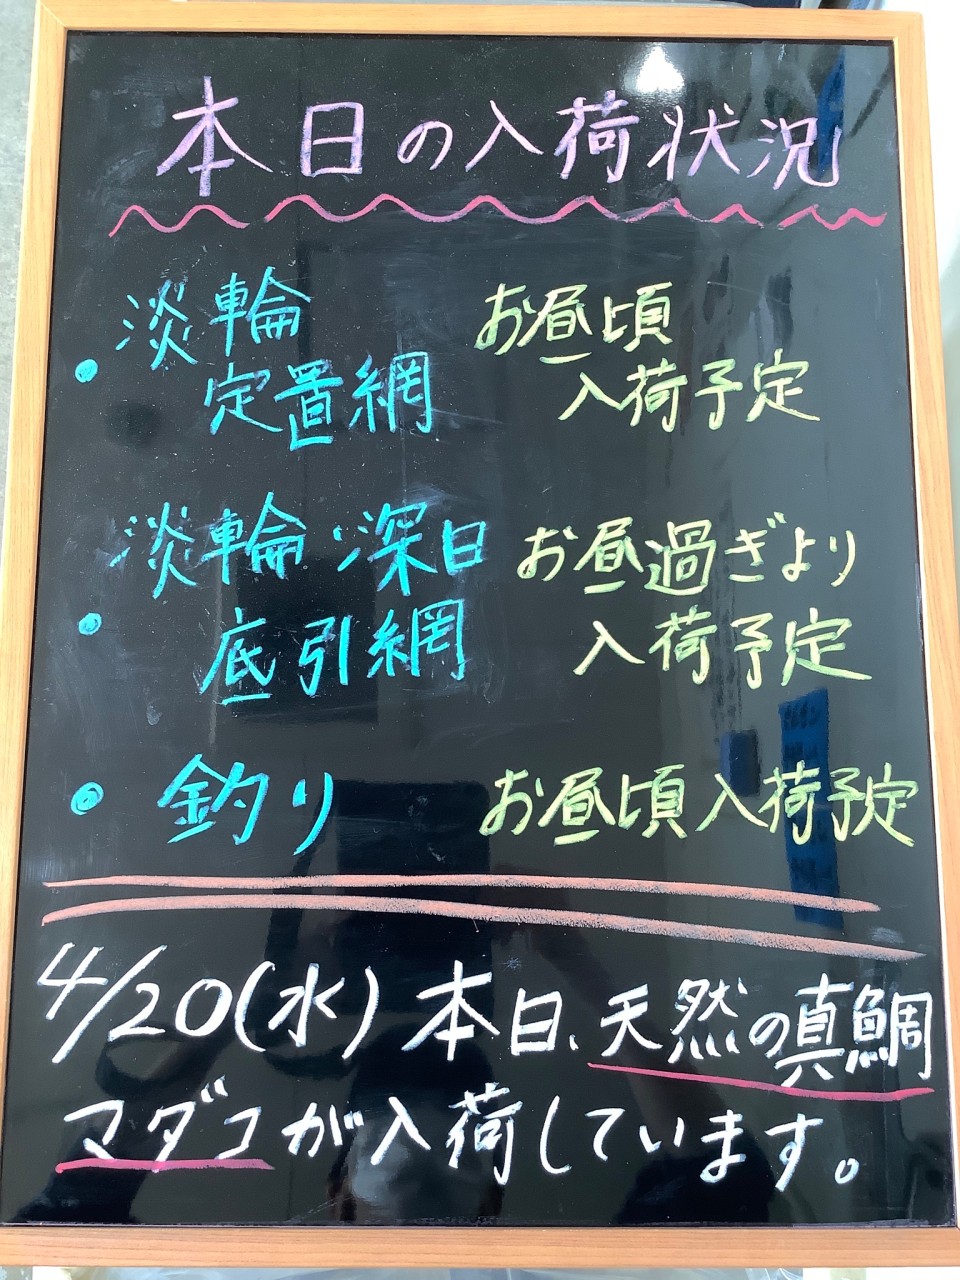 本日の入荷状況
・淡輪
定置網
お昼頃
入荷予定
・淡輪・深日
底引網
お昼過ぎより
入荷予定
・釣り
お昼頃入荷予定
4/20(水)本日、天然の真鯛
マダコが入荷しています。